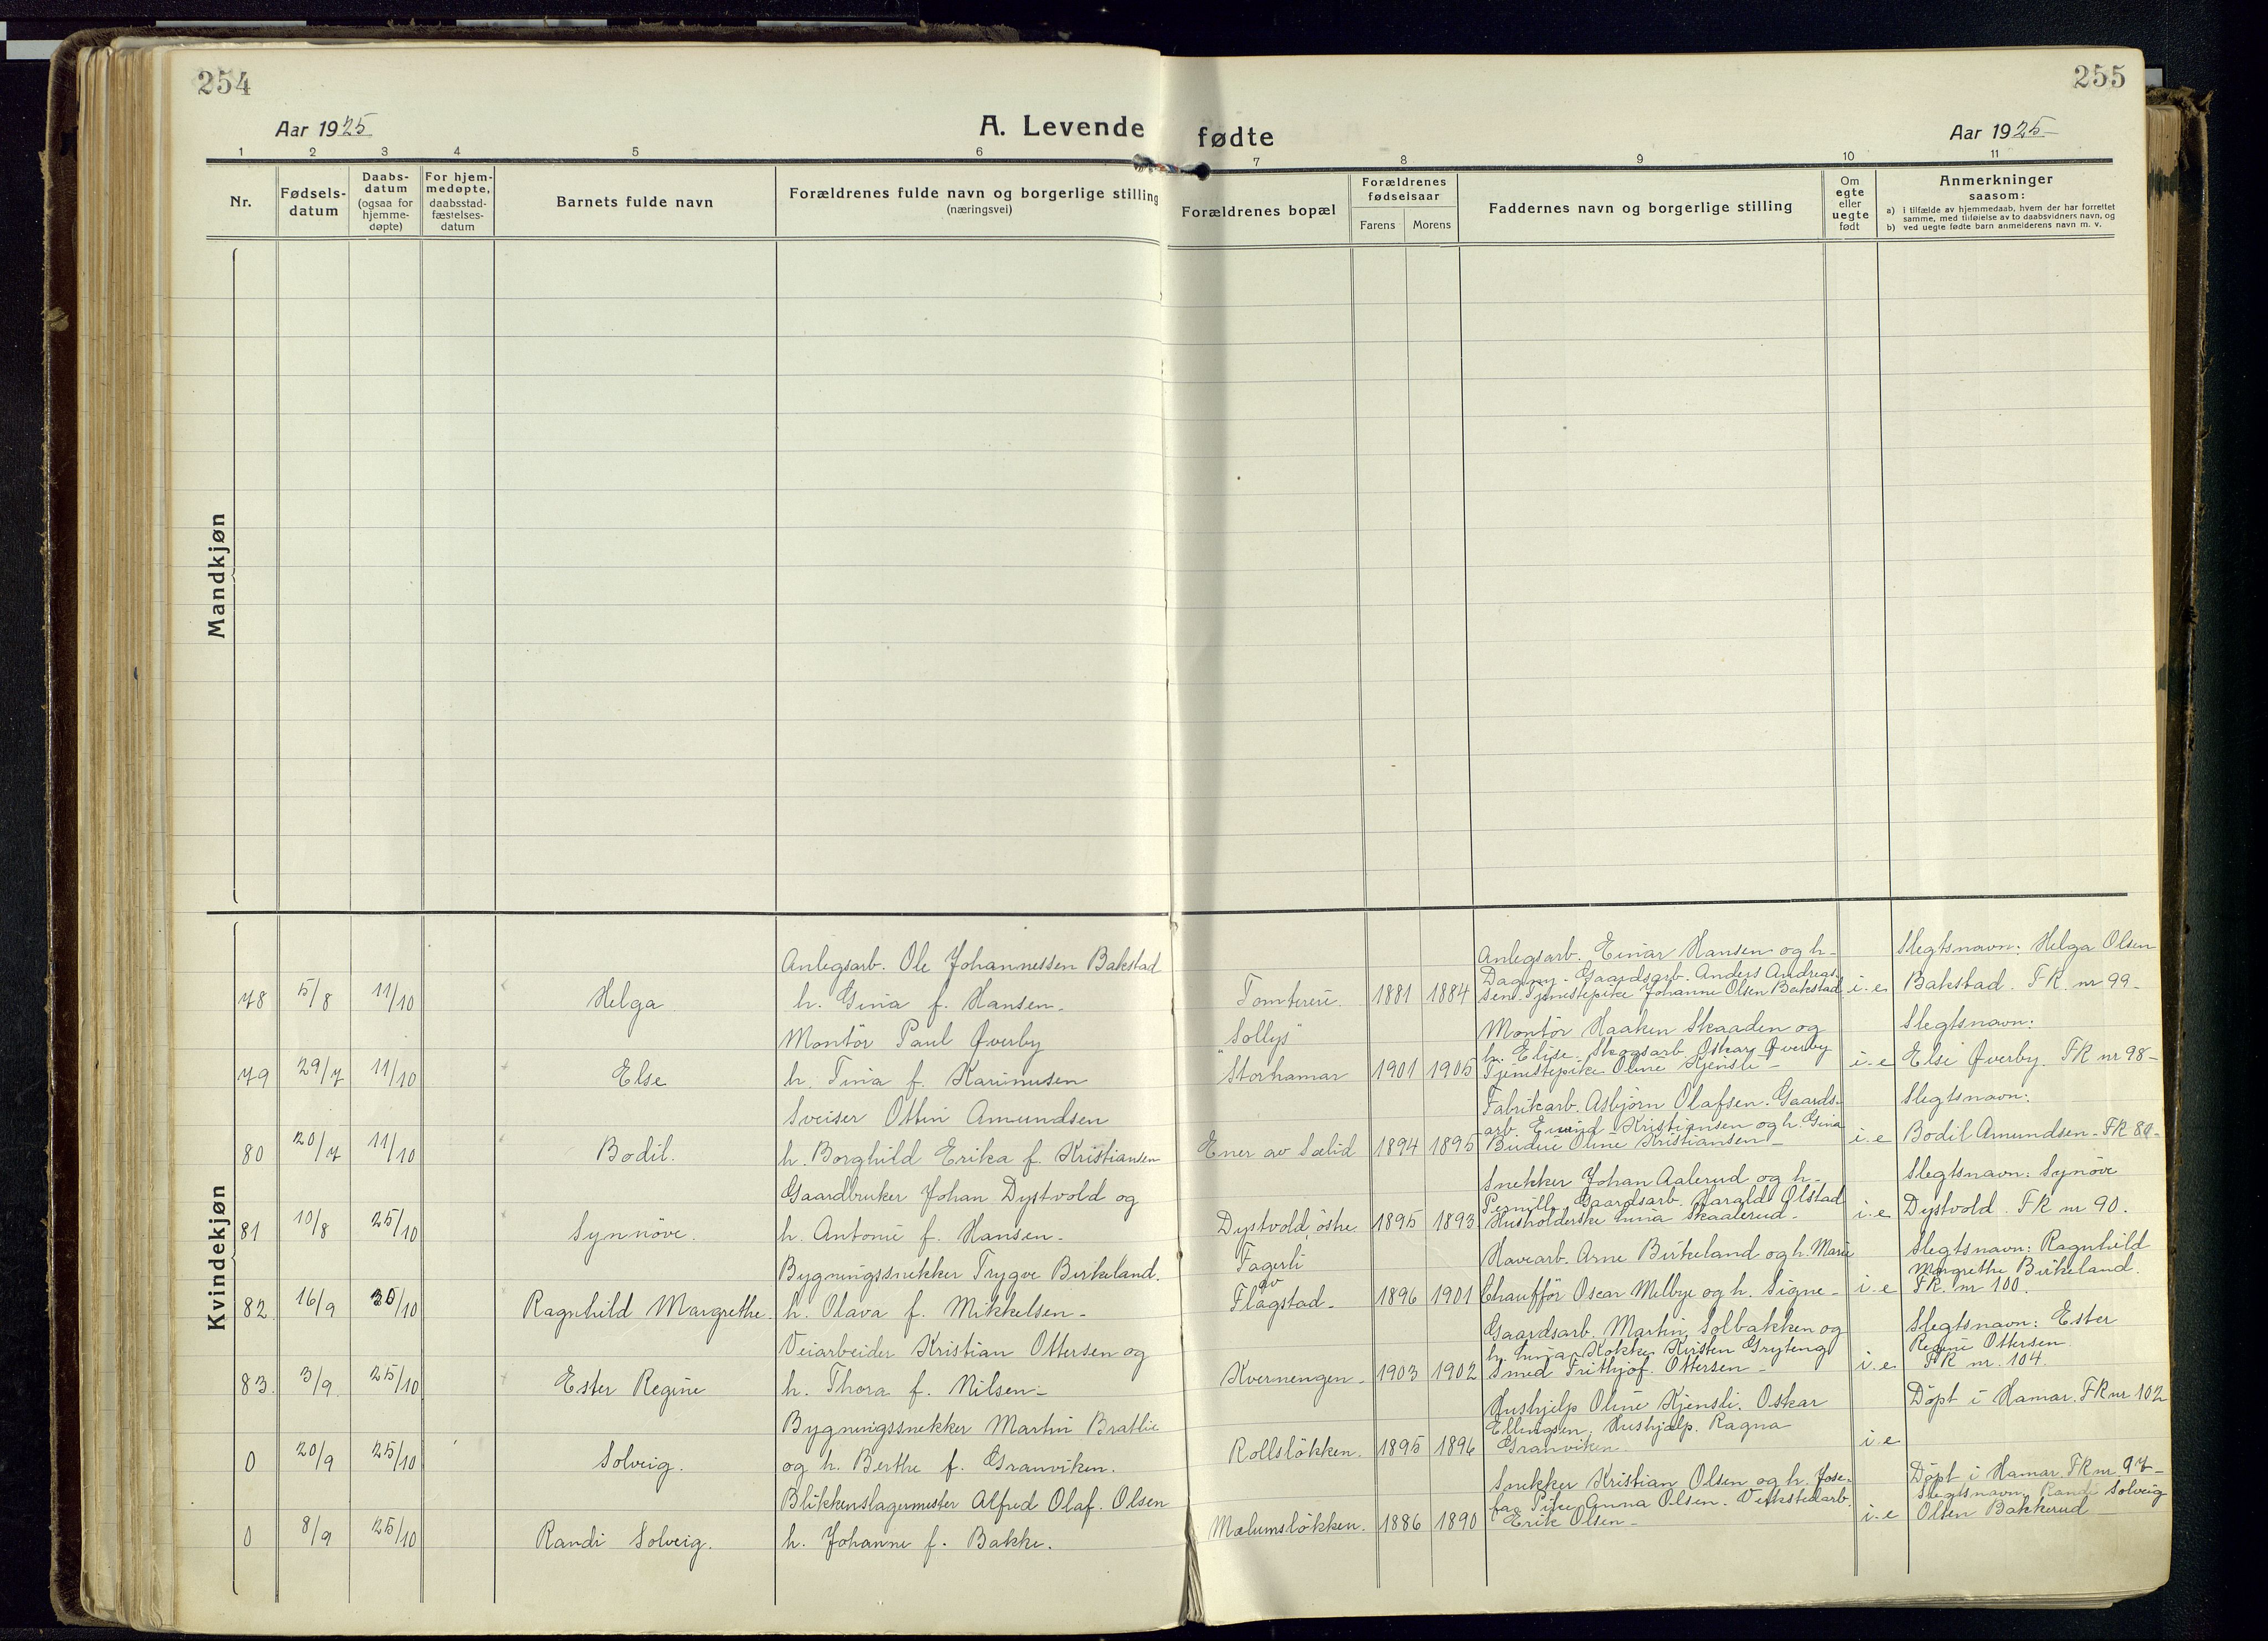 254
Aar 1925
A. Levende
fødte
255
Aar 1925
1 2 3 4 5 6 7 8 9 10 11
Nr.
Fødsels-
datum
Daabs-
datum
(ogsaa for
hjemme-
døpte)
For hjem-
medøpte,
daabsstad-
fæstelses-
datum
Barnets fulde navn
Forældrenes fulde navn og borgerlige stilling
(næringsvei)
Forældrenes bopæl
Forældrenes
fødselsaar
Farens Morens
Faddernes navn og borgerlige stilling
Om
egte
eller
uegte
født
Anmerkninger
saasom:
a) i tilfælde av hjemmedaab, hvem der har forrettet
samme, med tilføielse av to daabsvidners navn, og
b) ved uegte fødte barn anmelderens navn m. v.
Mandkjøn
Kvindekjøn
78 5/8 11/10 Helga
Anlegsarb. Ole Johannessen Bakstad
h. Gina f. Hansen-
Tomtereie 1881 1884
Anlegsarb. Einar Hansen og h-
Dagny. Gaardsarb. Anders Andreas-
sen. Tjenestepike Johanne Olsen Bakstad
i-e
Slegtsnavn: Helga Olsen
Bakstad. FR. nr 99-
79 29/7 11/10 Else
Montör Paul Øverby
h. Tina f. Karinusen
"Sollys"
Storhamar 1901 1905
Montör Haaken Skaaden og
h. Elise. Skogsarb Oskar Øverby
Tjenestepike Oline Kjensli-
i-e
Slegtsnavn:
Else Øverby. FR nr 98-
80 20/7 11/10 Bodil.
Sveiser Ottin Amundsen
h. Borghild Erika f. Kristiansen
Ener av Sælid 1894 1895
Fabrikarb. Asbjörn Olafsen. Gaards-
arb. Kristiansen og h. Gina
Oline Kristiansen-
i-e
Slegtsnavn:
Bodil Amundsen-FR 89-
81 10/8 25/10 Synnöve.
Gaardbruker Johan Dystvold og
h. Antonie f. Hansen-
Dystvold, östre 1895 1893
Snekker Johan Aalerud og h-
Pernille. Gaardsarb. Harald Olstad
Husholderske Lina Skaalerud-
i-e
Slegtsnavn: Synöve
Dystvold. FR nr 90.
82 16/9 /10 Ragnhild Margrethe.
Bygningssnekker Trygve Birkeland.
h. Olava f. Mikkelsen-
Fagerli
av
Flagstad- 1896 1901
Havearb. Arne Birkeland og h. Marie
Chaufför Oscar Melbye og h. Signe-
i-e
Slegtsnavn: Ragnhild
Margrethe Birkeland.
FR. nr 100.
83. 3/9 25/10 Ester Regine
Veiarbeider Kristian Ottersen og
h. Thora f. Nilsen-
Kvernengen- 1903 1902
Gaardsarb. Martin Solbakken og
h. Kokke Kirsten Gryteng
Smed Frithjof. Ottersen-
i.e
Slegtsnavn: Ester
Regine Ottersen.
FR nr. 104.
0 20/9 25/10 Solveig.
Bygningssnekker Martin Bratlie
og h. Berthe f. Granviken.
Rollslökken. 1895 1896
Hushjelp Oline Kjensli. Oskar
Ellingsen. Hushjelp. Ragna
Granviken.
i.e
Döpt i Hamar. FR nr 102
0 8/9 25/10 Randi Solveig.
Blikkenslagermester Alfred Olaf. Olsen
h. Johanne f. Bakke.
Mælumslökken. 1886 1890
Snekker Kristian Olsen og h. Jose-
fa. Pike Anna Olsen. Verkstedarb.
Erik Olsen-
i-e
Döpt i Hamar FR nr 97-
Slegtsnavn Randi Solveig
Olsen Bakkerud-